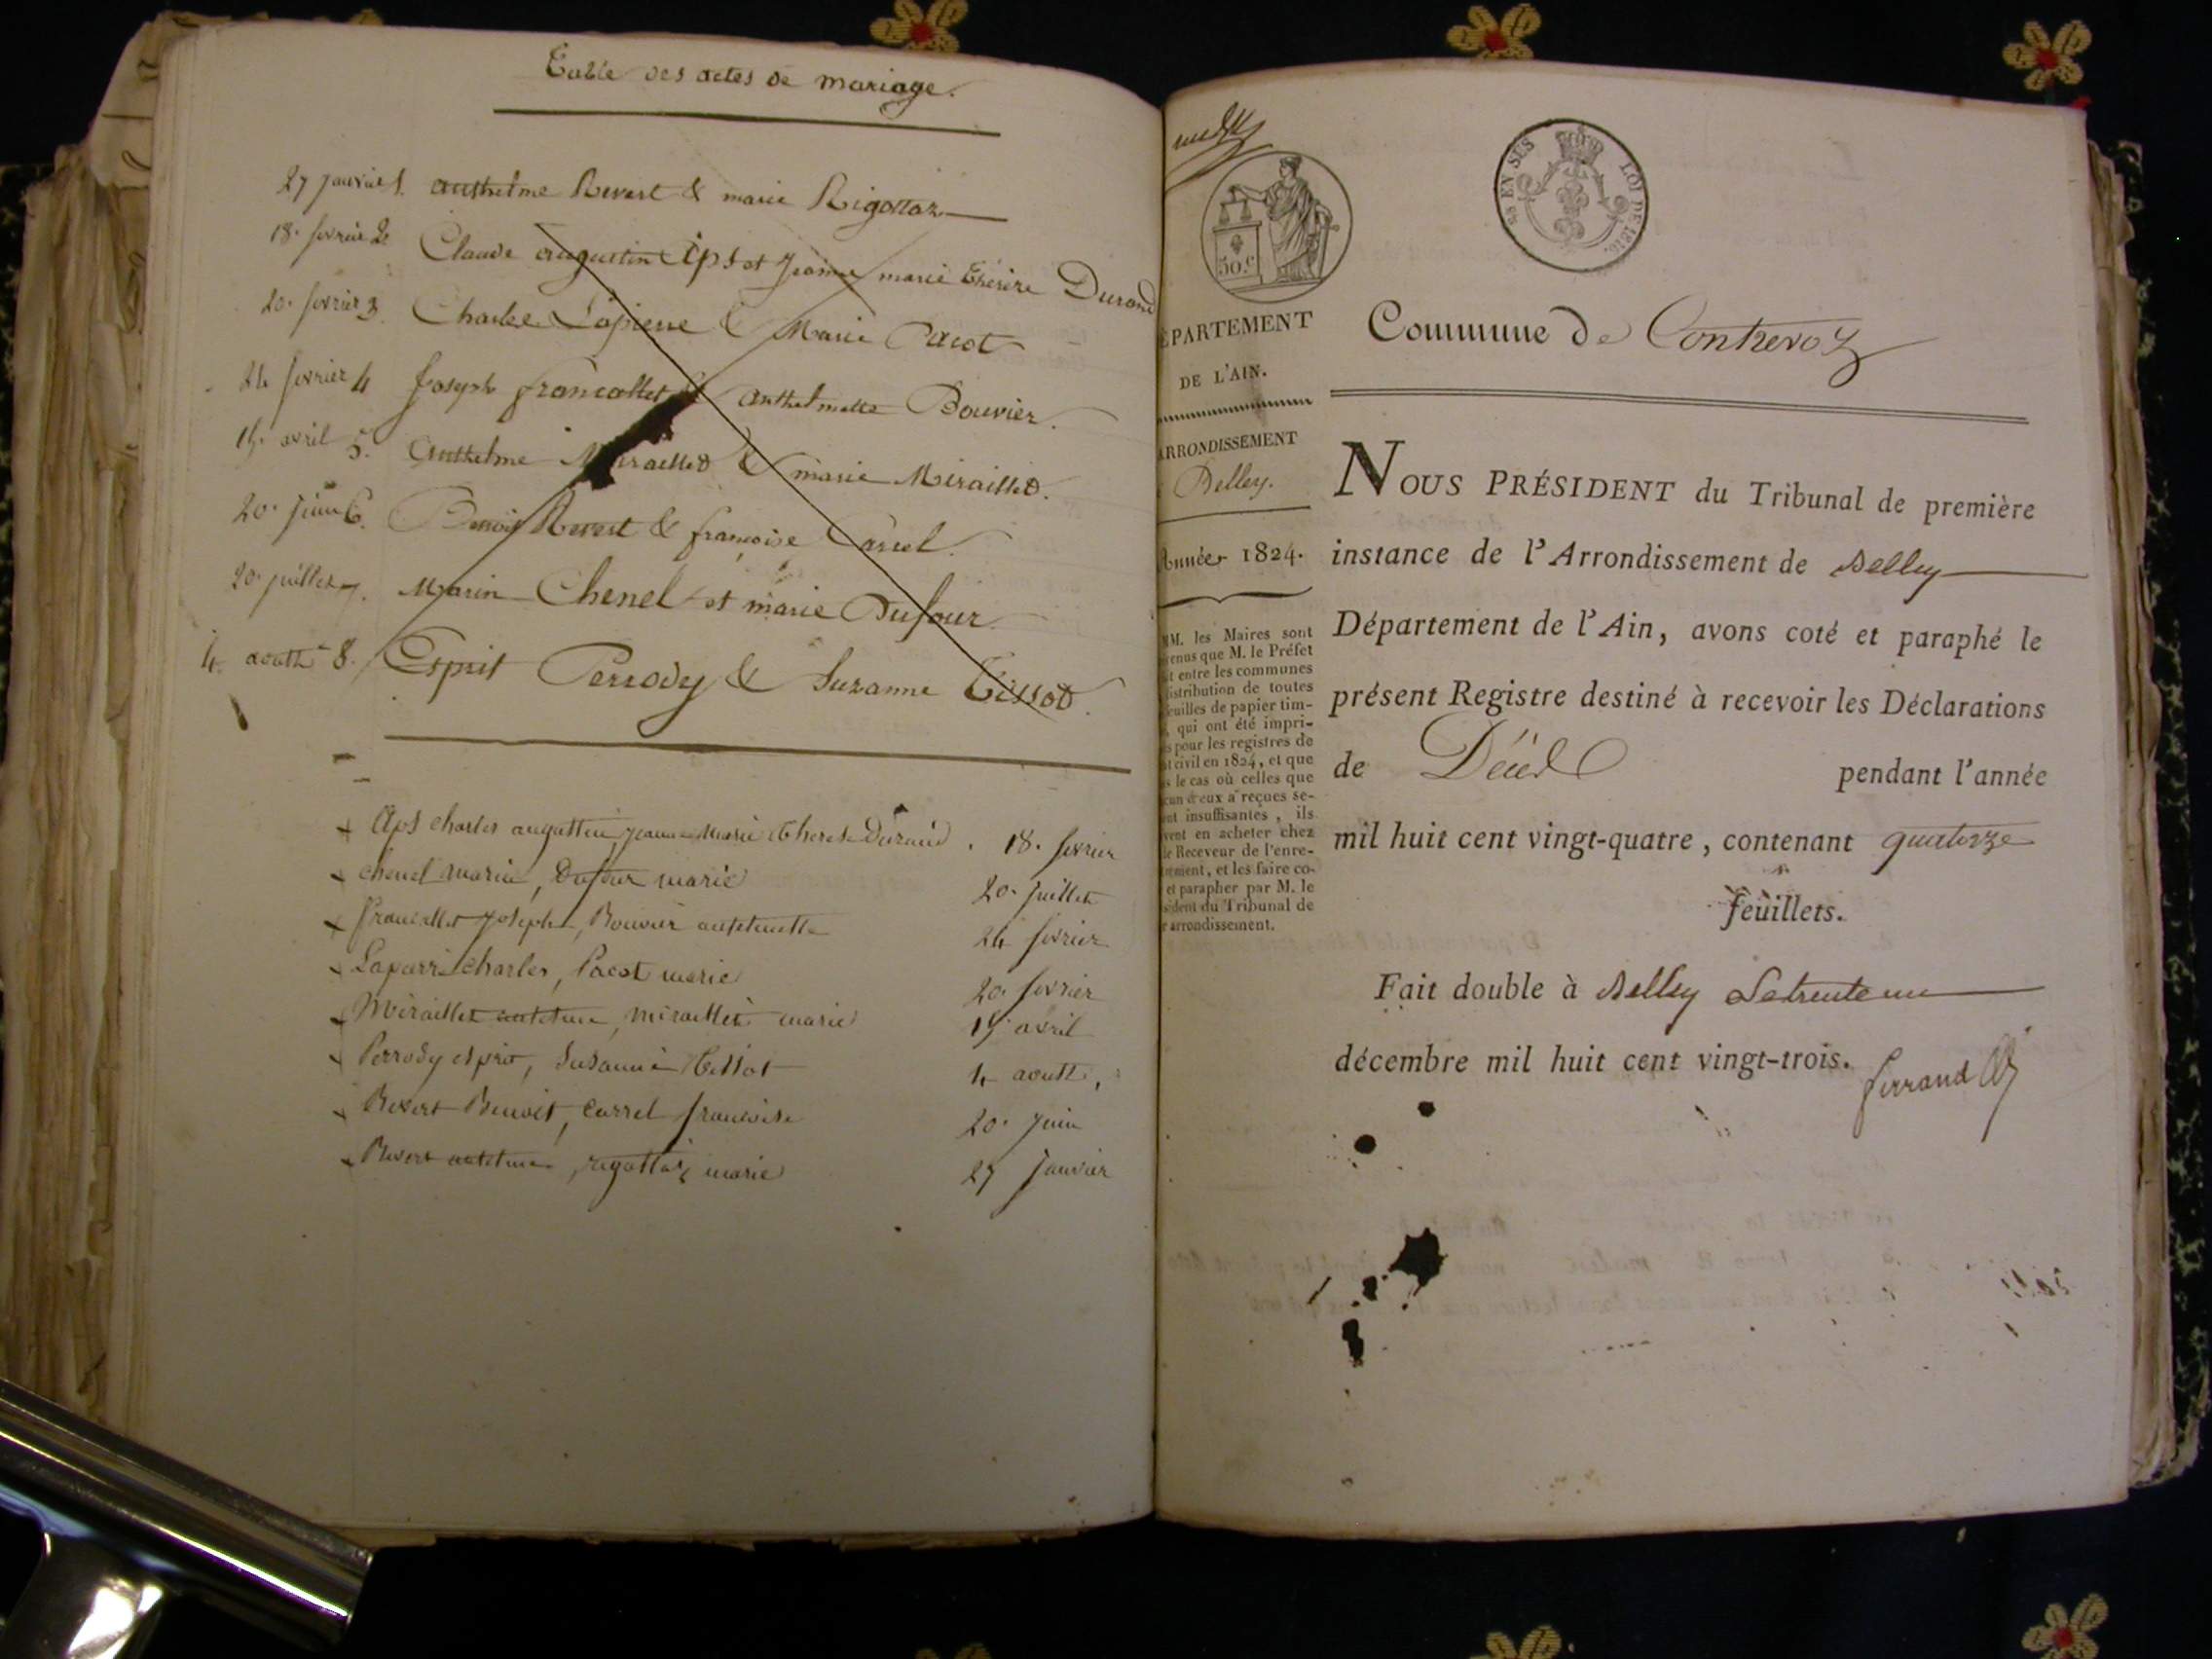 Table des actes de mariage.
27 janvier 1. anthelme Revert & marie Rigottaz
18. fevrier 2. Claude augustin Aps et Jeanne marie Thérèze Durand
20. fevrier 3. Charles Lapierre & Marie Pacot
24 fevrier 4 Joseph francallet & anthelmette Bouvier.
19. avril 5. Anthelme Miraillet & marie Miraillet.
20. juin 6. Benoit Revert & françoise Carrel.
20. juillet 7. Marin Chenel et marie Dufour.
4. aoutt 8. Esprit Perrody & Suzanne Tissot.
Aps charles augustin, jeanne Marie Therese Durand. 18. fevrier
chenel marin, Dufour marie 20. juillet
francallet Joseph, Bouvier 24 fevrier
charles, Pacot marie 20. fevrier
Miraillet, miraillet marie 19 avril
Perrody esprit, Susanne Tissot 4 aoutt,
Revert Benoit, Carrel françoise 20. juin
Revert, rigottaz marie 27 janvier
50.c
LOI DE 1816.
EN SUS
Commune de Contrevoz
ÉPARTEMENT
DE L'AIN.
RRONDISSEMENT
Belley.
Année 1824.
MM. les Maires sont
enus que M. le Préfet
t entre les communes
istribution de toutes
euilles de papier tim-
, qui ont été impri-
s pour les registres de
t civil en 1824, et que
s le cas où celles que
cun d'eux a reçues se-
nt insuffisantes, ils
vent en acheter chez
e Receveur de l'enre-
rement, et les faire co-
et parapher par M. le
sident du Tribunal de
r arrondissement.
NOUS PRÉSIDENT du Tribunal de première
instance de l'Arrondissement de Belley
Département de l'Ain, avons coté et paraphé le
présent Registre destiné à recevoir les Déclarations
de Décès pendant l'année
mil huit cent vingt-quatre, contenant quatorze
feuillets.
Fait double à Belley Le trente un
décembre mil huit cent vingt-trois.
ferrand